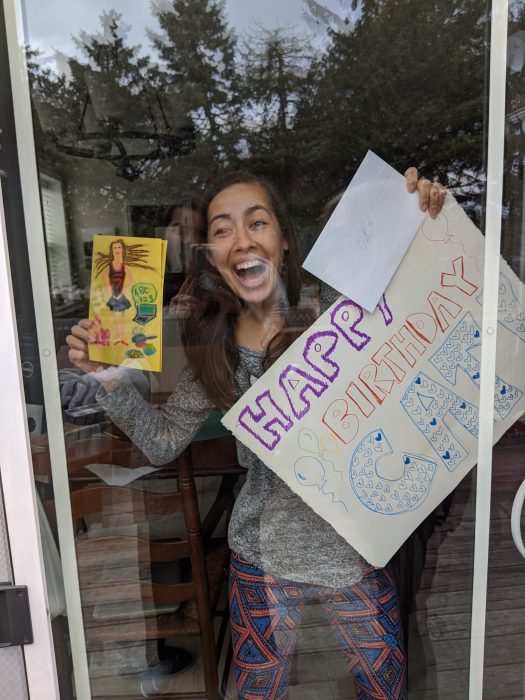 ABC
123
HAPPY
BIRTHDAY